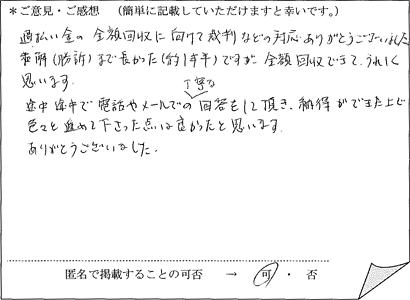 *ご意見・ご感想 (簡単に記載していただけますと幸いです。)
過払い金の全額回収に向けて裁判などの対応ありがとうございました
和解(勝訴)まで長かった(約1年半)ですが全額回収できて、うれしく
思います。
丁寧な
途中途中で電話やメールでの回答をして頂き、納得ができた上で
色々と進めて下さった点は良かったと思います。
ありがとうございました。
匿名で掲載することの可否 → 可 ・ 否